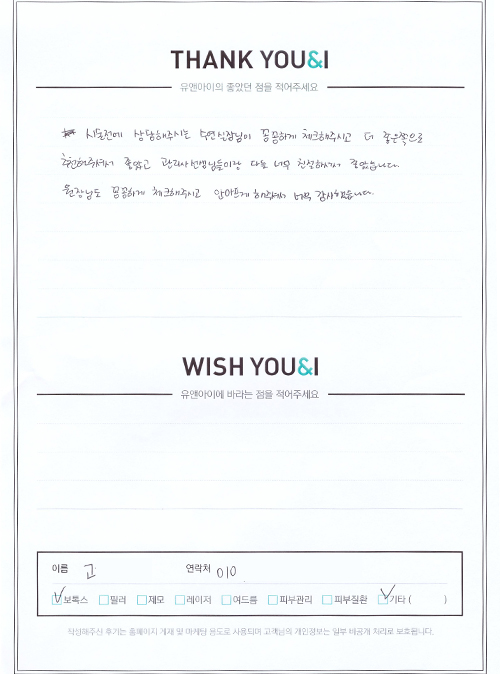 THANK YOU&I
유앤아이의 좋았던 점을 적어주세요
시술전에 상담해주시는 수연실장님이 꼼꼼하게 체크해주시고 더 좋은쪽으로
추천해주셔서 좋았고 관리사선생님들이랑 다들 너무 친절하셔서 좋았습니다.
원장님도 꼼꼼하게 체크해주시고 안아프게 해주셔서 너무 감사했습니다.
WISH YOU&I
유앤아이에 바라는 점을 적어주세요
이름 고 연락처 010
보톡스 필러 제모 레이저 여드름 피부관리 피부질환 기타 ( )
작성해주신 후기는 홈페이지 게재 및 마케팅 용도로 사용되며 고객님의 개인정보는 일부 비공개 처리로 보호됩니다.